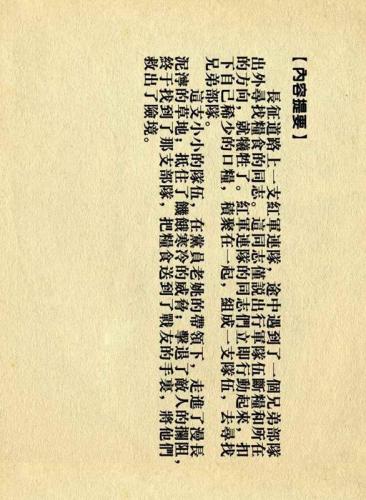 【內容提要】
長征道路上一支紅軍連隊，途中遇到了一個兄弟部隊
出外尋找糧食的同志。這同志僅說出行軍隊伍斷糧和所在
的方向，就犧牲了。紅軍連隊的同志們立即行動起來，扣
下自己稀少的口糧，積聚在一起，組成一支隊伍，去尋找
兄弟部隊。
這支小小的隊伍，在黨員老姚的帶領下，走進了漫長
泥濘的草地；抵住了饑餓寒冷的威脅；擊退了敵人的攔阻，
終于找到了那支部隊，把糧食送到了戰友的手裏，將他們
救出了險境。